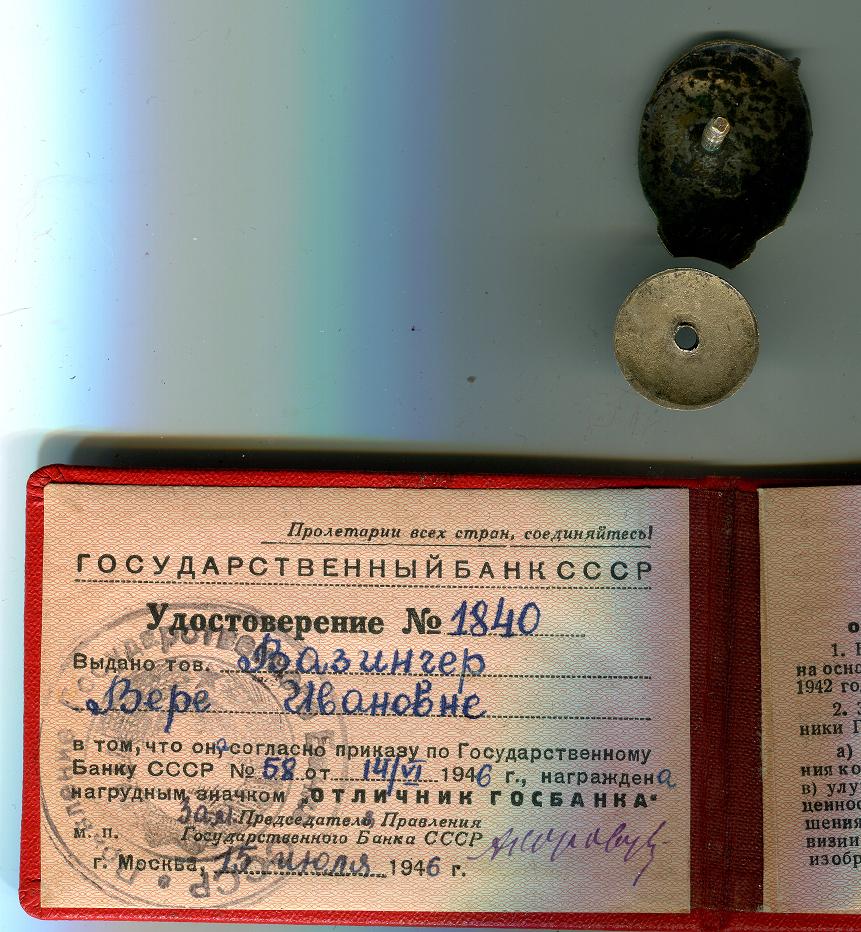 Пролетарии всех стран, соединяйтесь!
ГОСУДАРСТВЕННЫЙ БАНК СССР
Удостоверение № 1840
Выдано тов. Вазингер
Вере Ивановне
в том, что она согласно приказу по Государственному
Банку СССР № 58 от 14/VI 1946 г., награждена
нагрудным значком „ОТЛИЧНИК ГОСБАНКА“
Зам. Председателя Правления
м. п. Государственного Банка СССР
г. Москва, 15 июля 1946 г.
о
1. 
на осно
1942 го
2. 
ники Г
а)
ния ко
в) улу
ценнос
шения
визии
изобр